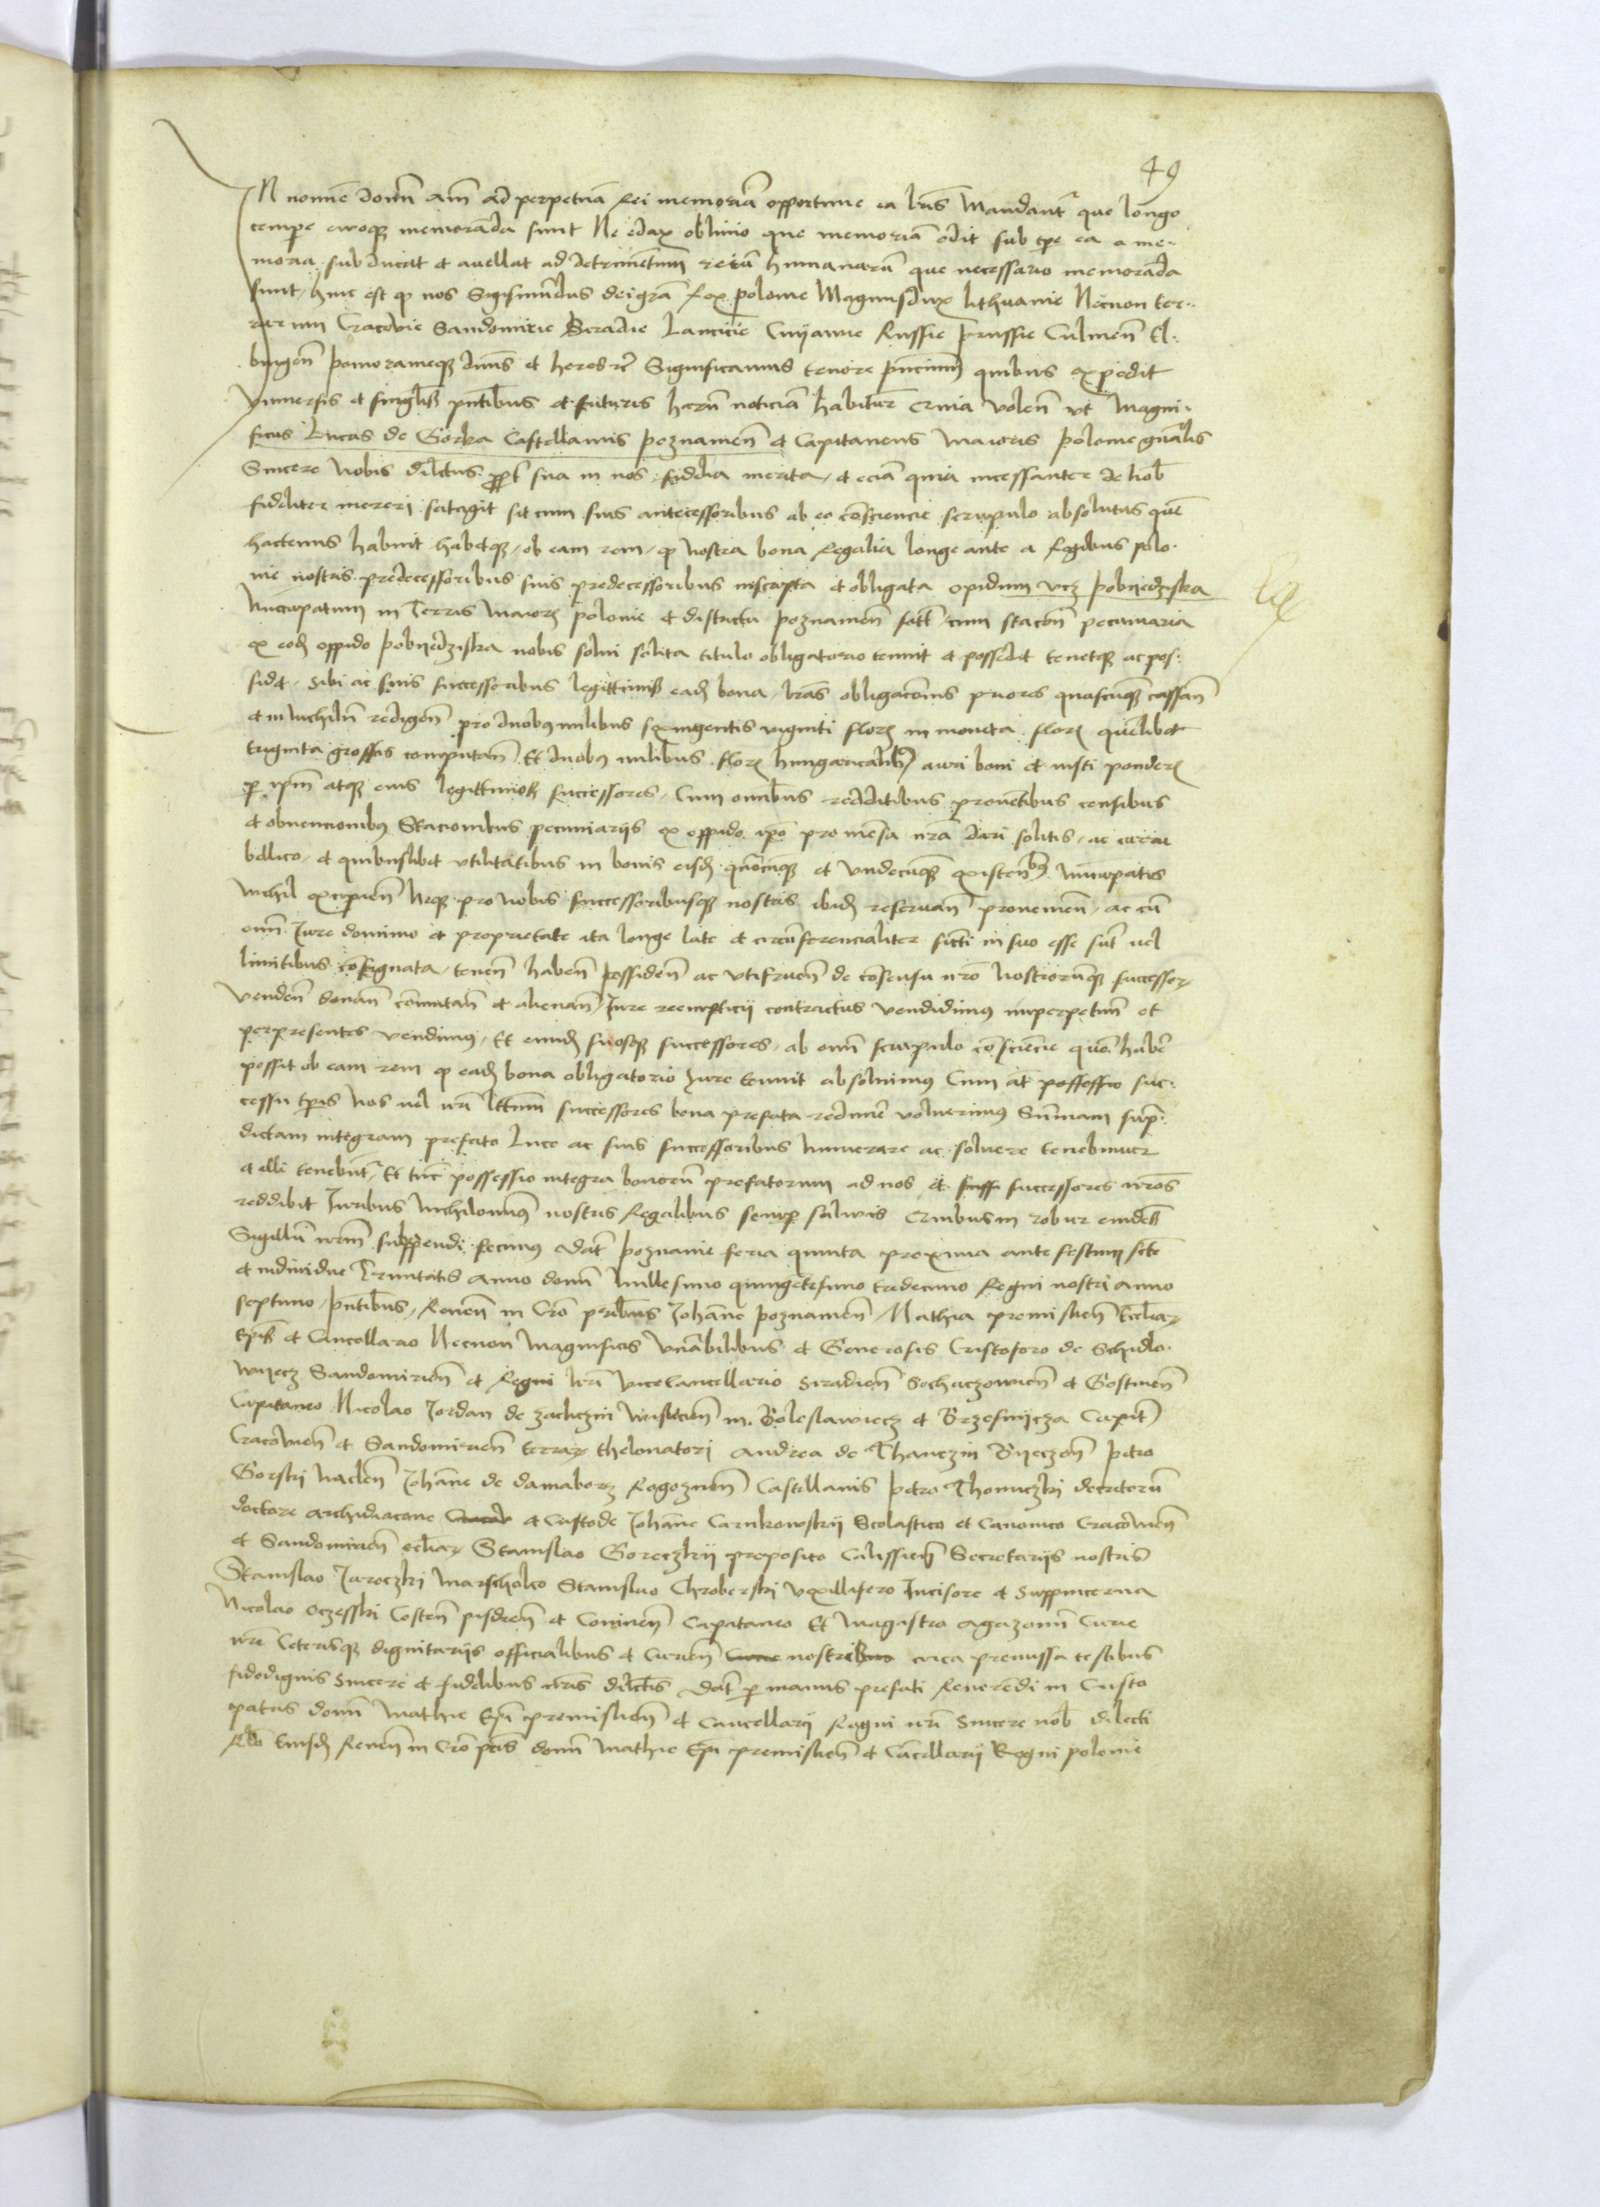 49
IN nomine domini amen ad perpetuam Rei memoriam opportune ea litteris Mandantur que longo
tempore evoque memoranda sunt Ne edax oblivio que memoriam odit sub tempore ea a me-
moria subducat et avellat ad detrimentum rerum humanarum que necessario memoranda
sunt, hinc est quod nos Sigismundus dei gratia Rex polonie Magnusdux lithuanie Necnon ter-
rarum Cracovie Sandomirie Siradie Lancicie Cuyavie Russie prussie Culmen El-
bingen pomoranieque dominus et heres etc Significamus tenore presencium quibus expedit
Universis et singulis presentibus et futuris harum noticiam habituris Cum volen ut Magni-
ficus Lucas de Gorka Castellanus poznanien et Capitaneus Maioris polonie generalis
Sincere Nobis dilectus propter sua in nos fidelia merita, et eciam quia incessanter de nobis
fideliter mereri satagit sit cum suis antecessoribus ab eo consciencie scrupulo absolutus quem
hactenus habuit habetque, ob eam rem, quod nostra bona Regalia longe ante a Regibus polo-
nie nostris predecessoribus suis predecessoribus inscripta et obligata opidum videlicet pobyedziska
Nuncupatum in Terris Maioris polonie et districtu poznanien sitis cum stacione pecuniaria
ex eodem oppido pobyedziska nobis solvi solita titulo obligatorio tenuit et possedit tenetque ac pos-
sidet, Sibi ac suis successoribus legittimis eadem bona, litteras obligacionis priores quascunque cassan
et in Nichilum redigen pro duobus milibus sexingentis viginti floren in moneta floren quemlibet
triginta grossis computan Et duobus milibus floren hungaricalibus auri boni et iusti ponderis
per ipsum atque eius legittimos successores, Cum omnibus redditibus proventibus censibus
et obvencionibus Stacionibus pecuniariis ex oppido ipso pro mensa nostra dari solitis, ac curru
bellico, et quibuslibet utilitatibus in bonis eisdem quomocunque et undecunque existentibus Nuncupatis
Nichil excipien Neque pro Nobis successoribusque nostris ibidem reservan provenien, ac cum
omni Jure dominio et proprietate ita longe late et circumferencialiter sicuti in suo esse sunt vel
limitibus consignata, tenen haben possiden ac utifruen de consensu nostro Nostrorumque successorum
venden donan commutan et alienan, Jure reemptici contractus vendidimus imperpetuum et
per presentes vendimus, Et eundem suosque successores, ab omni scrupulo consciencie quem habere
possit ob eam rem quod eadem bona obligatorio Jure tenuit absolvimus Cum autem possessio suc-
cessu temporis Nos vel nostri legittimi successores bona prefata redimere voluerimus Summam supra-
dictam integram prefato Luce ac suis successoribus Numerare ac solvere tenebimur
et illi tenebuntur, Et tunc possessio integra bonorum prefatorum ad nos et successores nostros
reddibit Juribus Nichilominus nostris Regalibus semper salvis Quibus in robur eiusdem
Sigillum nostrum subappendi fecimus Datum poznanie feria quinta proxima ante festum sancte
et individue Trinitatis Anno domini Millesimo quingentesimo tredecimo Regni nostri anno
septimo, presentibus, Reveren in Cristo patribus Johanne poznanien, Mathia premislien Ecclesiarum
Episcopis et Cancellario Necnon Magnificis Venerabilibus et Generosis Cristoforo de Schidlo-
wyecz Sandomirien et Regni nostri Vicecancellario Siradien Sochaczovien et Gostinen
Capitaneo Nicolao Jordan de zacliczin Wislicien in Boleslawiecz et Brzesnycza Capit
Cracovien et Sandomirien terrarum thelonatori Andrea de Thanczin Byeczen petro
Gorski Naclen Johanne de damaborz Rogoznen Castellanis petro Thomiczki decretorum
doctore archidiacono et Custode Johanne Carnkowskij Scolastico et Canonico Cracovien
et Sandomirien ecclesiarum Stanislao Goreczkij preposito Calissien Secretariis nostris
Stanislao Jaroczki Marschalco Stanislao Chroberski Vexillifero Incisore et Suppincerna
Nicolao Oczesski Costen pisdren et Coninen Capitaneo Et Magistro agazonum Curie
nostre Ceterisque dignitariis officialibus et Curien nostris circa premissa testibus
fidedignis Sincere et fidelibus nostris dilectis Datum per manus prefati Reverendi in Cristo
patris domini Mathie Episcopi premislien et Cancellarii Regni nostri Sincere nobis dilecti
Relatio Eiusdem Reveren in Cristo patris domini Mathie Episcopi premislien et Cancellarii Regni polonie